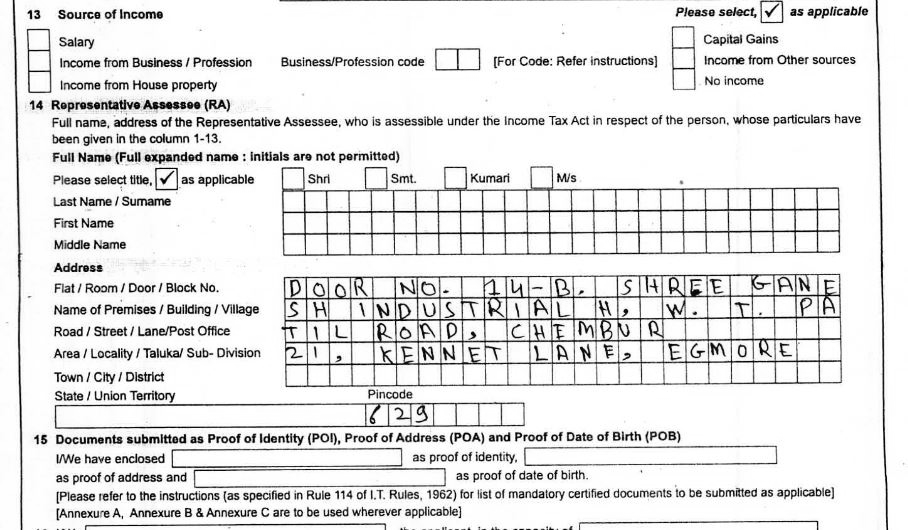 13 Source of Income
Please select, ✓ as applicable
Salary
Capital Gains
Income from Business / Profession Business/Profession code [For Code: Refer instructions]
Income from Other sources
Income from House property
No income
14 Representative Assessee (RA)
Full name, address of the Representative Assessee, who is assessible under the Income Tax Act in respect of the person, whose particulars have
been given in the column 1-13.
Full Name (Full expanded name : initials are not permitted)
Please select title, ✓ as applicable Shri Smt. Kumari M/s
Last Name / Surname
First Name
Middle Name
Address
Flat / Room / Door / Block No. DOOR NO. 14-B. SHREE GANE
Name of Premises / Building / Village SH INDUSTRIAL H, W. T. PA
Road / Street / Lane/Post Office TIL ROAD, CHEMBUR
Area / Locality / Taluka/ Sub- Division 21, KENNET LANE, EGMORE
Town / City / District
State / Union Territory Pincode
629
15 Documents submitted as Proof of Identity (POI), Proof of Address (POA) and Proof of Date of Birth (POB)
I/We have enclosed as proof of identity,
as proof of address and as proof of date of birth.
[Please refer to the instructions (as specified in Rule 114 of I.T. Rules, 1962) for list of mandatory certified documents to be submitted as applicable]
[Annexure A, Annexure B & Annexure C are to be used wherever applicable]